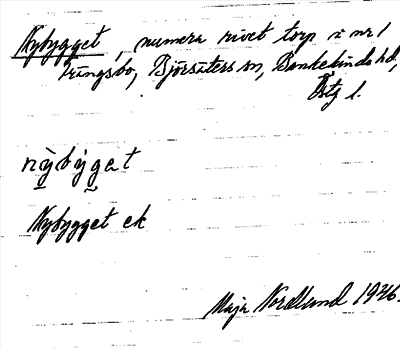 Nybygget, numera rivet torp i nr 1
Trängsbo, Björsäters sn, Bankekinds hd,
Östg l.
nỳbýget
Nybygget ek
Maja Nordlund 1946.